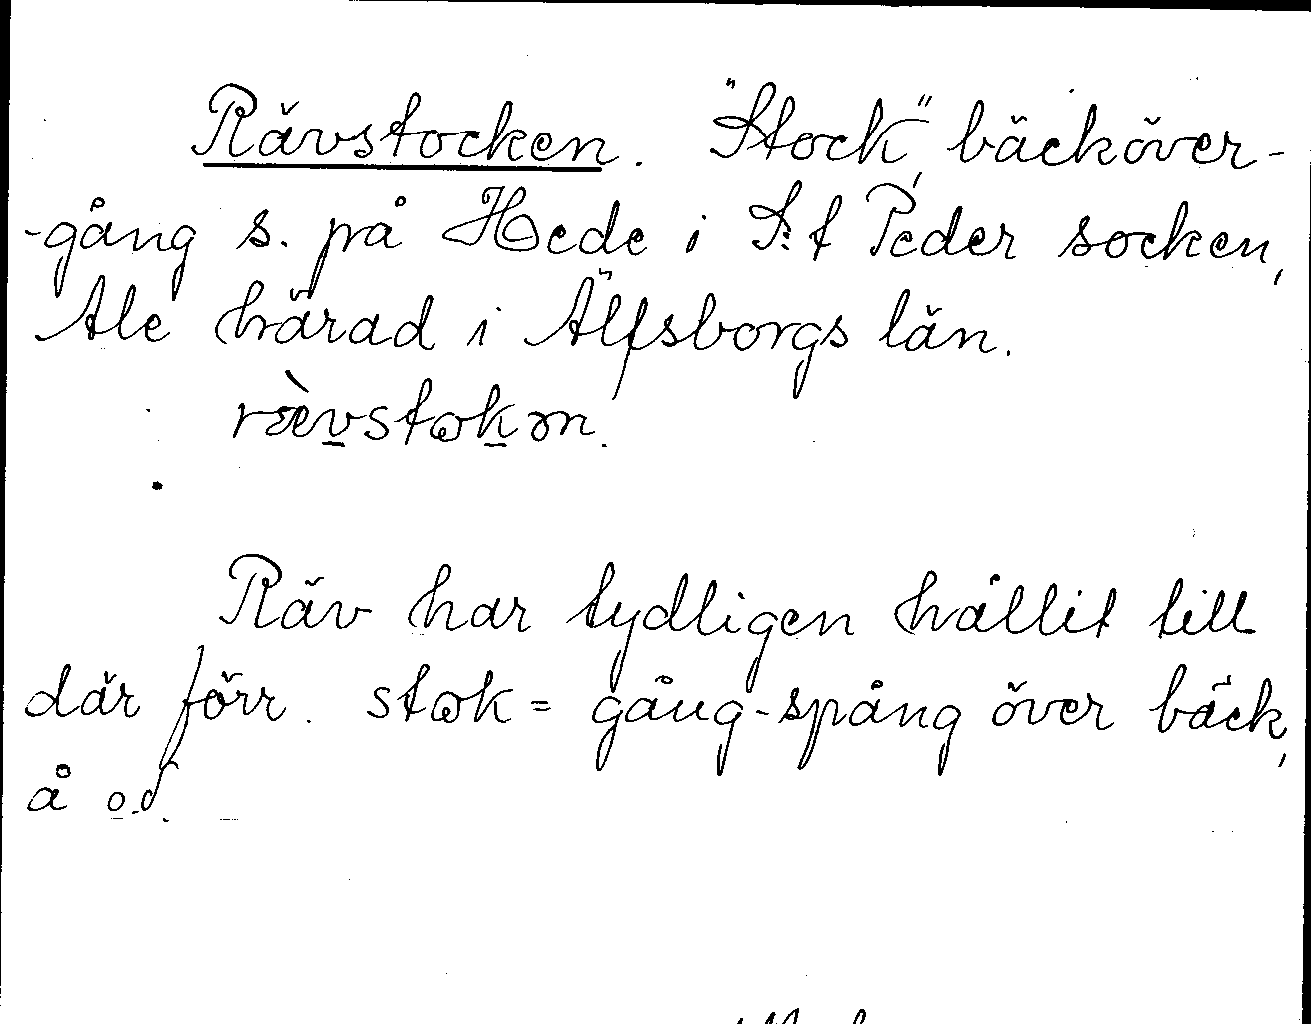 Rävstocken. "Stock", bäcköver-
-gång s. på Hede i S:t Peder socken,
Ale härad i Älfsborgs län.
ræ̀vstɷkən.
Räv har tydligen hållit till
där förr. stɷk = gång-spång över bäck,
å o.d.